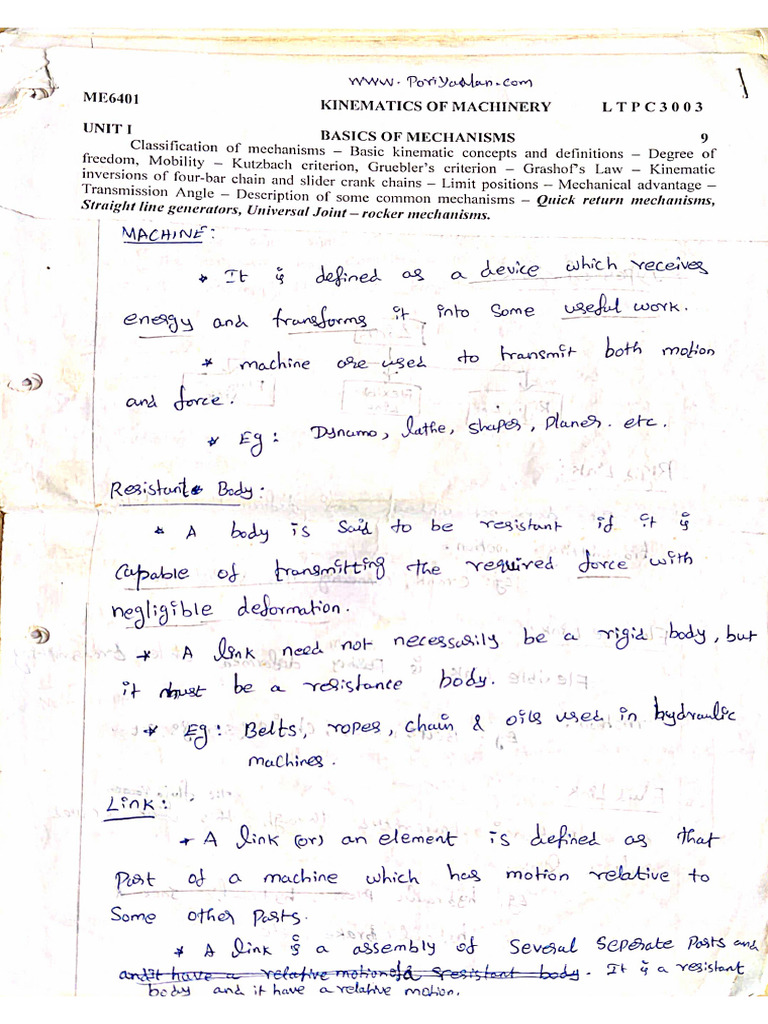 www.Poriyaalan.com
ME6401 KINEMATICS OF MACHINERY L T P C 3 0 0 3
UNIT I BASICS OF MECHANISMS 9
Classification of mechanisms – Basic kinematic concepts and definitions – Degree of
freedom, Mobility – Kutzbach criterion, Gruebler's criterion – Grashof's Law – Kinematic
inversions of four-bar chain and slider crank chains – Limit positions – Mechanical advantage –
Transmission Angle – Description of some common mechanisms – Quick return mechanisms,
Straight line generators, Universal Joint – rocker mechanisms.
MACHINE:
* It is defined as a device which receives
energy and transforms it into some useful work.
* machine are used to transmit both motion
and force.
* Eg: Dynamo, lathe, shaper, planer. etc.
Resistant Body:
* A body is said to be resistant if it is
capable of transmitting the required force with
negligible deformation.
* A link need not necessarily be a rigid body, but
it must be a resistance body.
* Eg: Belts, ropes, chain & oils used in hydraulic
machines.
Link:
* A link (or) an element is defined as that
part of a machine which has motion relative to
some other parts.
* A link is a assembly of several seperate parts and
and it have a relative motion of a resistant body. It is a resistant
body and it have a relative motion.